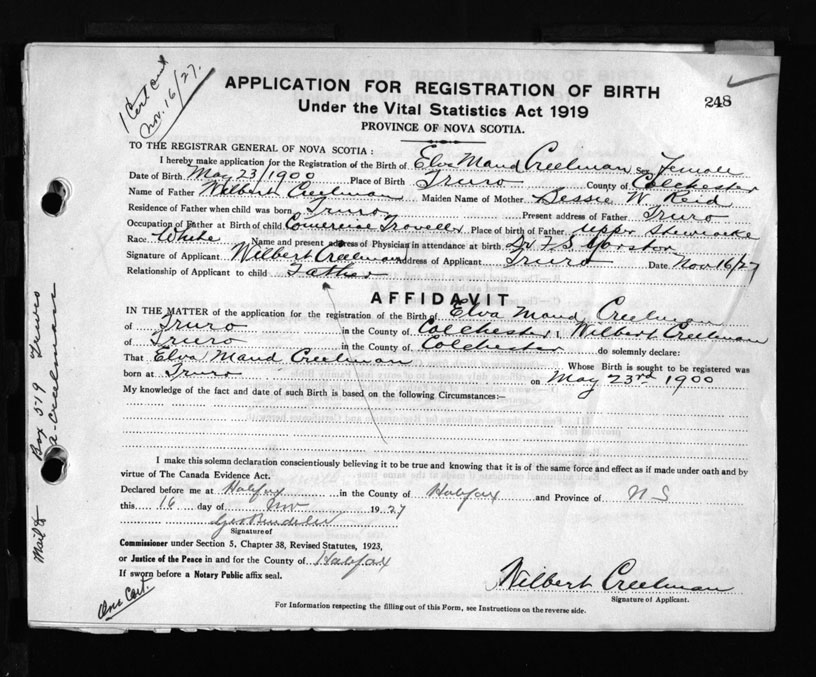 1 Cert out
Nov. 16/27.
APPLICATION FOR REGISTRATION OF BIRTH
Under the Vital Statistics Act 1919
248
PROVINCE OF NOVA SCOTIA.
TO THE REGISTRAR GENERAL OF NOVA SCOTIA:
I hereby make application for the Registration of the Birth of Elva Maud Creelman Sex Female
Date of Birth May 23/1900 Place of Birth Truro County of Colchester
Name of Father Wilbert Creelman Maiden Name of Mother Bessie W Reid
Residence of Father when child was born Truro Present address of Father Truro
Occupation of Father at Birth of child Comercial Traveller Place of Birth of Father Upper Stewiacke
Race White Name and present address of Physician in attendance at birth Dr Yorston
Signature of Applicant Wilbert Creelman Address of Applicant Truro Date Nov 16/27
Relationship of Applicant to child Father
AFFIDAVIT
IN THE MATTER of the application for the registration of the Birth of Elva Maud Creelman
of Truro in the County of Colchester I, Wilbert Creelman
of Truro in the County of Colchester do solemnly declare:
That Elva Maud Creelman Whose Birth is sought to be registered was
born at Truro on May 23rd 1900
My knowledge of the fact and date of such Birth is based on the following Circumstances:—
I make this solemn declaration conscientiously believing it to be true and knowing that it is of the same force and effect as if made under oath and by
virtue of The Canada Evidence Act.
Declared before me at Halifax in the County of Halifax and Province of N S
this 16 day of Nov 1927
Signature of
Commissioner under Section 5, Chapter 38, Revised Statutes, 1923,
or Justice of the Peace in and for the County of Halifax
If sworn before a Notary Public affix seal.
Wilbert Creelman
Signature of Applicant.
For Information respecting the filling out of this Form, see Instructions on the reverse side.
One Cert.
Mail to
Box 519 Truro
Creelman